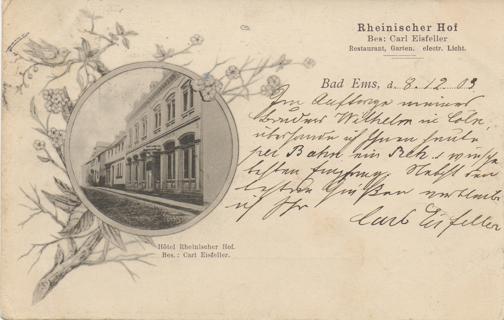 Rheinischer Hof
Bes: Carl Eisfeller
Restaurant, Garten, electr. Licht.
Bad Ems, d. 8.12.03
Im Auftrage meines
Bruders Wilhelm in Cöln,
übersende ich Ihnen heute
per Bahn ein Pck.
besten Empfang. Nebst den
besten Grüßen verbleibe
ich Ihr
Carl Eisfeller
Hôtel Rheinischer Hof.
Bes.: Carl Eisfeller.